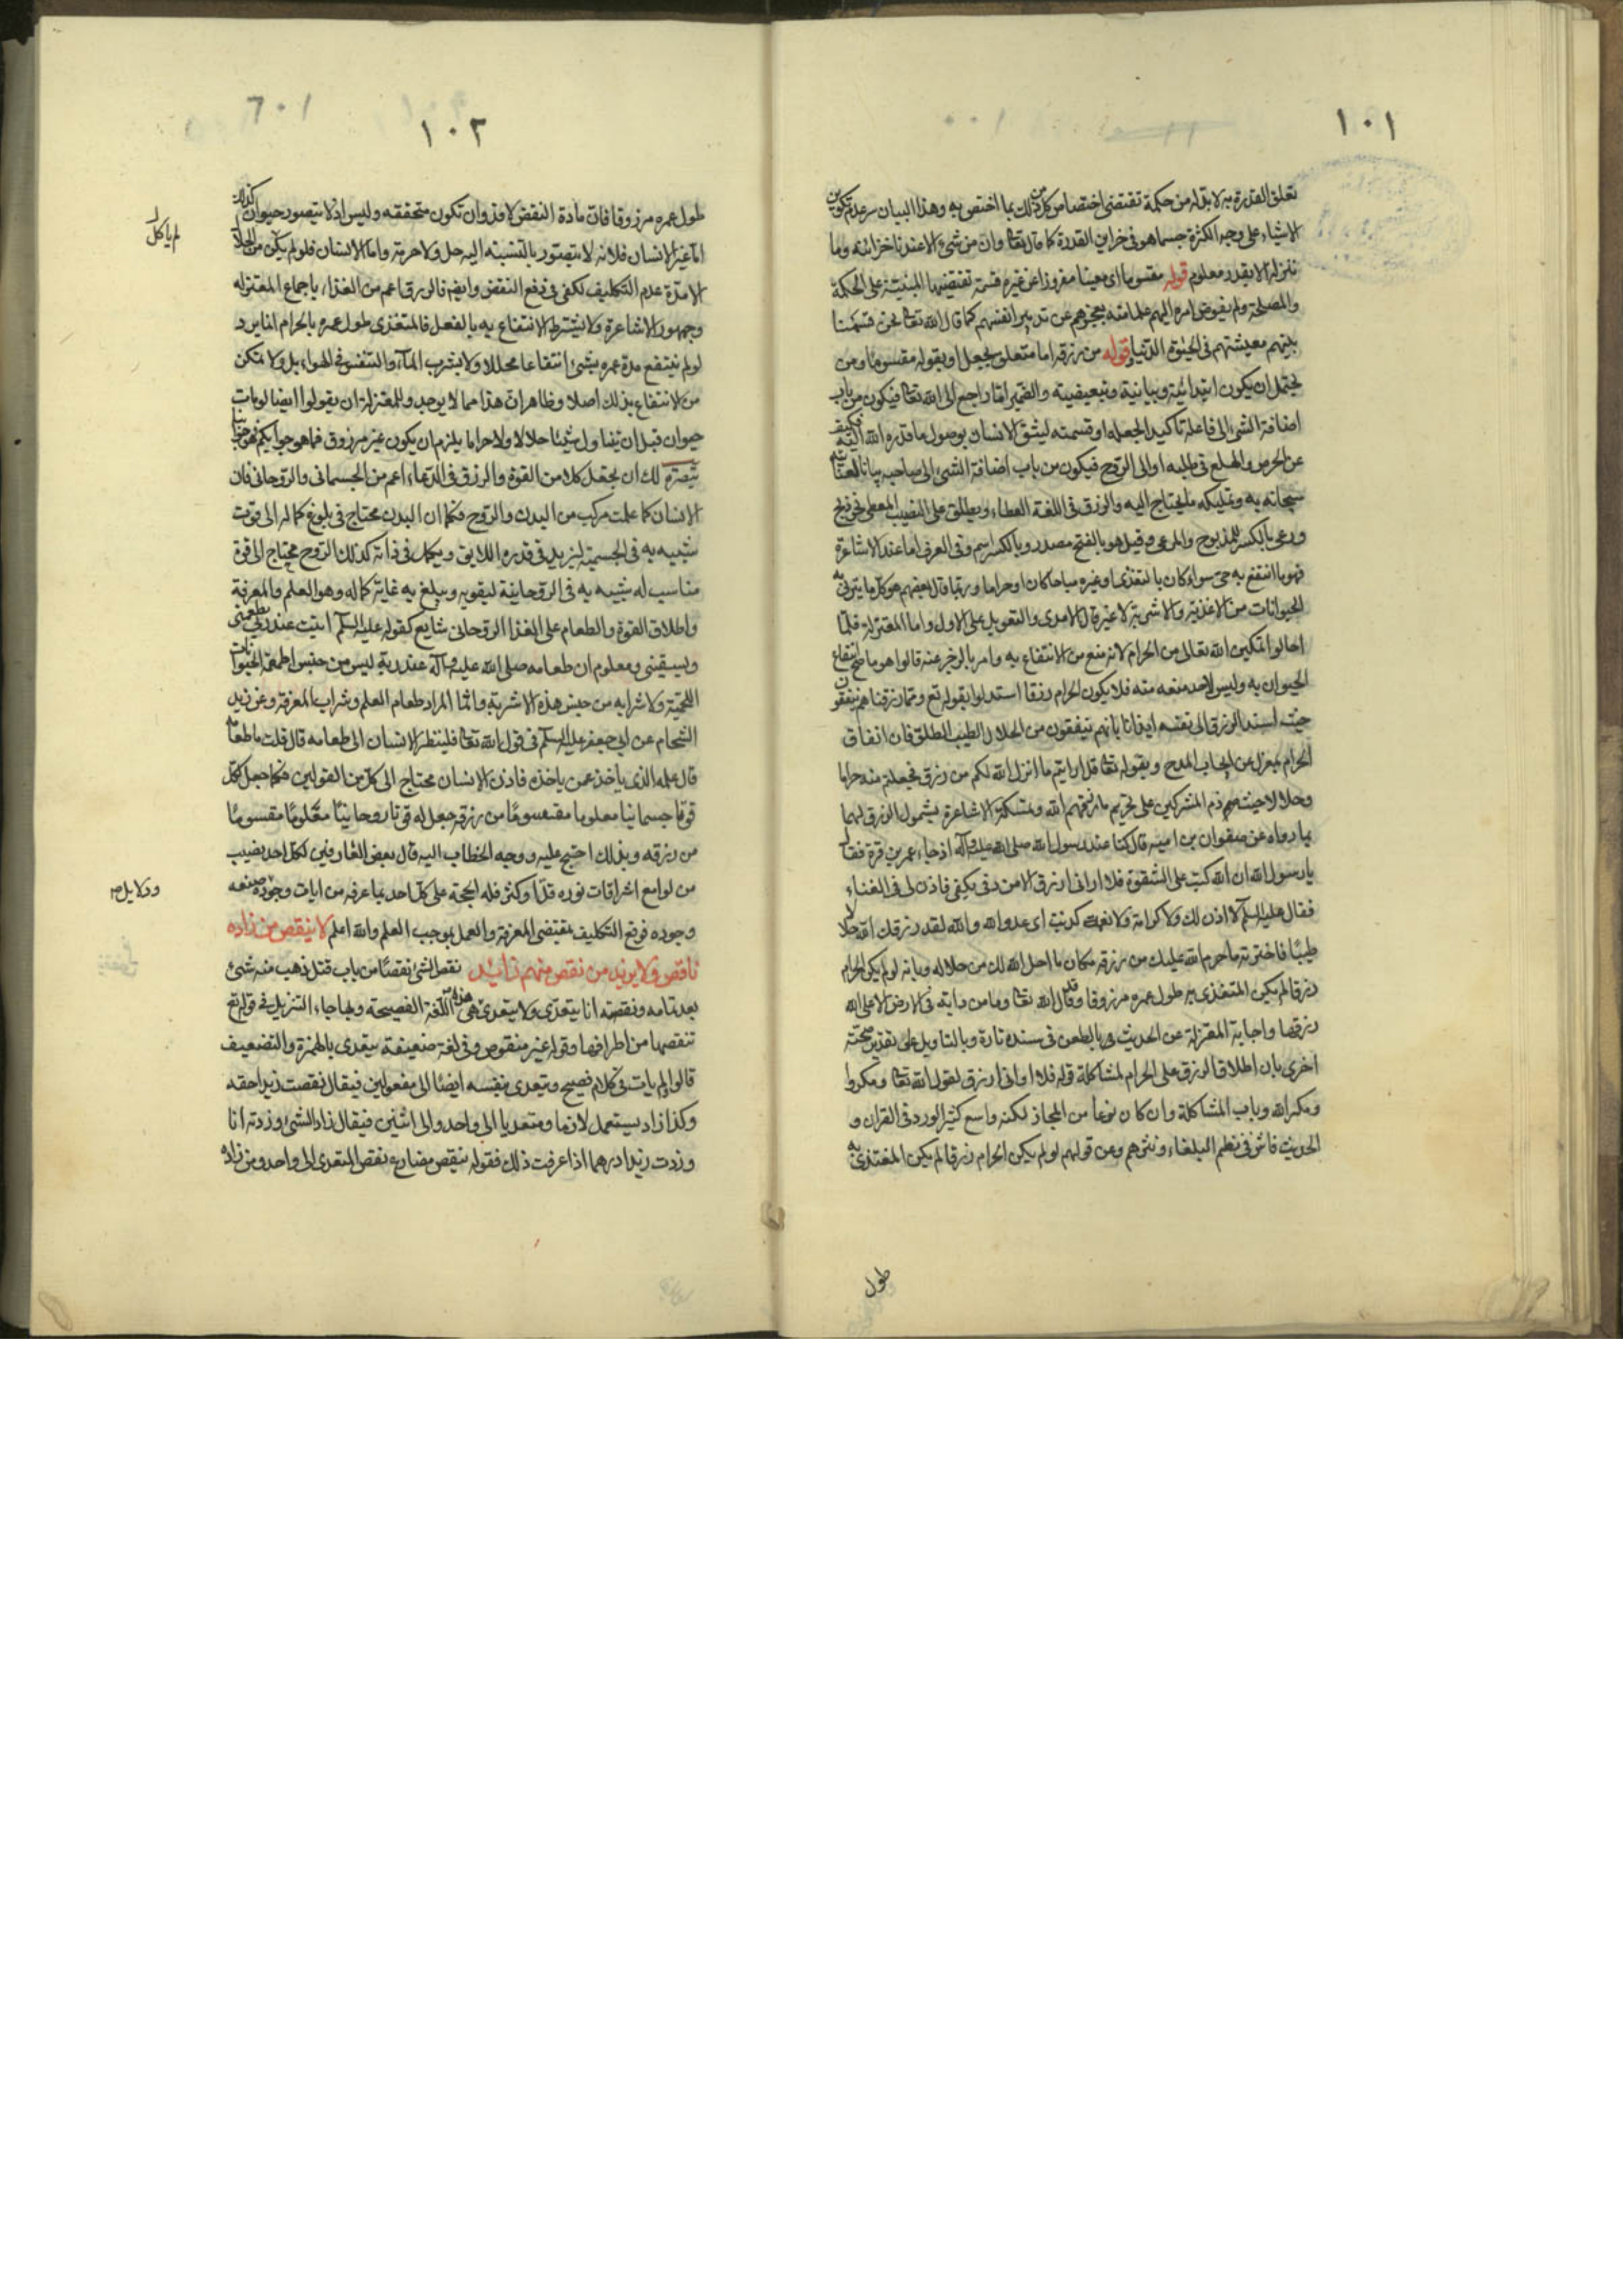 ١٠١
تعلق القدرة به لا بد له من حكمة تقتضى اختصاص كل من ذلك بما اختص به وهذا البيان سر عدم تكوين
الاشياء على وجه الكثرة حسبما هو فى خزاين القدرة كما قال تعا وان من شىء الا عندنا خزائنه وما
ننزله الا بقدر معلوم قوله مقسوما اى معينا مفروزا عن غيره قسمة تقتضيها المبنية على الحكمة
والمصلحة ولم يفوض امره اليهم علما منه بعجزهم عن تدبير انفسهم كما قال الله تعا نحن قسمنا
بينهم معيشتهم فى الحيوة الدنيا قوله من رزقه اما متعلق بجعل او بقوله مقسوما ومن
يحتمل ان يكون ابتدائية وبيانية وتبعيضية والضمير اما راجع الى الله تعا فيكون من باب
اضافة الشىء الى فاعله تاكيدا لجعله او قسمته ليثق الانسان بوصول ما قدره الله اليه فيكف
عن الحرص والهلع فى طلبه او الى الروح فيكون من باب اضافة الشىء الى صاحبه بيانا لعنايته
سبحانه به وتمليكه ما يحتاج اليه والرزق فى اللغة العطاء ويطلق على النصيب المعطى نحو ذبح
ورعى بالكسر للمذبوح والمرعى وقيل هو بالفتح مصدر وبالكسر اسم وفى العرف اما عند الاشاعرة
فهو ما انتفع به حى سواء كان بالتغذى او غيره مباحا كان او حراما وربما قال بعضهم هو كل ما يتربى به
الحيوانات من الاغذية والاشربة لا غير قال الامدى والتعويل على الاول واما المعتزلة فلما
احالوا تمكين الله تعالى من الحرام لانه منع من الانتفاع به وامر بالزجر عنه قالوا هو ما صح انتفاع
الحيوان به وليس لاحد منعه منه فلا يكون الحرام رزقا استدلوا بقوله تع ومما رزقناهم ينفقون
حيث اسند الرزق الى نفسه ايذانا بانهم ينفقون من الحلال الطيب الطلق فان انفاق
الحرام بمعزل عن ايجاب المدح وبقوله تعا قل ارايتم ما انزل الله لكم من رزق فجعلتم منه حراما
وحلالا حيث ذم المشركين على تحريم ما رزقهم الله وتمسكت الاشاعرة بشمول الرزق لهما
بما رواه عن صفوان بن امية قال كنا عند رسول الله صلى الله عليه وآله اذ جاء عمر بن قرة فقال
يا رسول الله ان الله كتب على الشقوة فلا ارانى ارزق الا من دفى بكفى فاذن لى فى الغناء
فقال عليه السلم لا اذن لك ولا كرامة ولا نعمة كذبت اى عدو الله والله لقد رزقك الله حلالا
طيبا فاخترت ما حرم الله عليك من رزقه مكان ما احل الله لك من حلاله وبانه لو لم يكن الحرام
رزقا لم يكن المتغذى به طول عمره مرزوقا وقد قال الله تعا وما من دابة فى الارض الا على الله
رزقها واجابة المعتزلة عن الحديث بالطعن فى سنده تارة وبالتاويل على تقدير صحته
اخرى بان اطلاق الرزق على الحرام لمشاكلة قوله فلا ارانى ارزق لقول الله تعا ومكروا
ومكر الله وباب المشاكلة وان كان نوعا من المجاز لكنه واسع كثير الورود فى القران و
الحديث فاش فى نظم البلغاء ونثرهم وعن قولهم لو لم يكن الحرام رزقا لم يكن المغتذى به
طول
١٠٢
طول عمره مرزوقا فان مادة النقض لا بد وان تكون متحققه وليس اذ لا يتصور حيوان كذلك
اما غير الانسان فلانه لا يتصور بالنسبة اليه حل ولا حرمة واما الانسان فلو لم ياكل من الحلال
الا مدة عدم التكليف لكفى فى دفع النقض وايضم فالرزق اعم من الغذاء باجماع المعتزله
وجمهور الاشاعرة ولا يشترط الانتفاع به بالفعل فالمتغذى طول عمره بالحرام انما يرد
لو لم ينتفع مدة عمره بشىء انتفاعا محللا ولا يشرب المآء والتنفس فى الهواء بل ولا تمكن
من الانتفاع بذلك اصلا وظاهر ان هذا مما لا يوجد وللمعتزلة ان يقولوا ايضا لو مات
حيوان قبل ان يتناول شيئا حلالا ولا حراما يلزم ان يكون غير مرزوق فما هو جوابكم فهو جوابنا
تبصرة لك ان تجعل كلا من القوة والرزق فى الدعاء اعم من الجسمانى والروحانى فان
الانسان كما علمت مركب من البدن والروح فكما ان البدن محتاج فى بلوغ كماله الى قوت
شبيه به فى الجسمية ليزيد فى قدره اللايق ويكمل فى ذاته كذلك الروح محتاج الى قوة
مناسب له شبيه به فى الروحانية ليقويه ويبلغ به غاية كماله وهو العلم والمعرفة
واطلاق القوة والطعام على الغذا الروحانى شايع كقوله عليه السلم ابيت عند ربى يطعمنى
ويسقينى ومعلوم ان طعامه صلى الله عليه وآله عند ربه ليس من جنس اطعمة الحيوانات
اللحمية ولا شرابه من جنس هذه الاشربة وانما المراد طعام العلم وشراب المعرفة وعن زيد
الشحام عن ابى جعفر عليه السلم فى قول الله تعا فلينظر الانسان الى طعامه قال قلت ما طعامه
قال علمه الذى ياخذ عمن ياخذه فاذن الانسان محتاج الى كل من القولين فكما جعل لكل
قوتا جسمانيا معلوما مقسوما من رزقه جعل له قوتا روحانيا معلوما مقسوما
من رزقه وبذلك احتج عليه ووجه الخطاب اليه قال بعض العارفين لكل احد نصيب
من لوامع اشراقات نوره قل او كثر فله الحجة على كل احد بما عرفه من ايات وجوده صنعه
وجوده فوقع التكليف بمقتضى المعرفة والعمل بموجب العلم والله اعلم لا ينقص من زاده
ناقص ولا يزيد من نقص منهم زائد نقص الشىء نقصا من باب قتل ذهب منه شىء
بعد تمامه ونقصته انا يتعدى ولا يتعدى هذه هى اللغة الفصيحة وبها جاء التنزيل فى قوله تع
ننقصها من اطرافها وقوله غير منقوص وفى لغة ضعيفة يتعدى بالهمزة والتضعيف
قالوا لم يات فى كلام فصيح ويتعدى بنفسه ايضا الى مفعولين فيقال نقصت زيدا حقه
وكذا زاد يستعمل لازما ومتعديا الى واحد والى اثنين فيقال زاد الشىء وزدته انا
وزدت زيدا درهما اذا عرفت ذلك فقوله ينقص مضارع نقص المتعدى الى واحد ومن زاده
لم ياكل
ودلايل